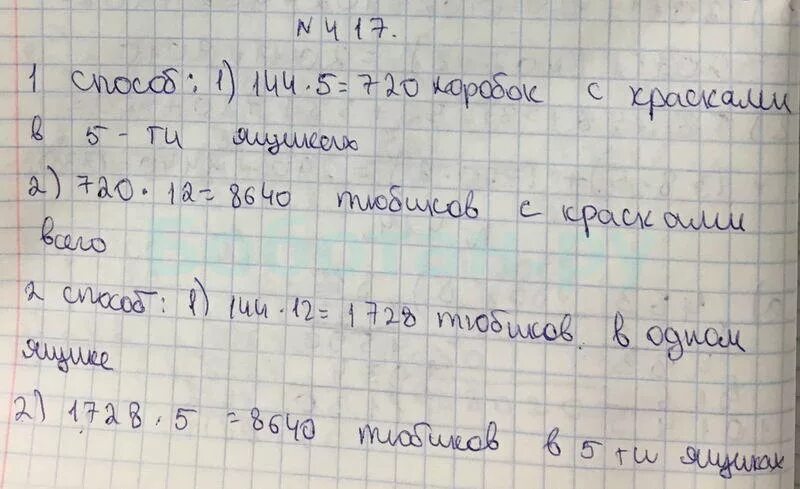 N 417.
1 способ: 1) 144 · 5 = 720 коробок с красками
в 5-ти ящиках
2) 720 · 12 = 8640 тюбиков с красками
всего
2 способ: 1) 144 · 12 = 1728 тюбиков в одном
ящике
2) 1728 · 5 = 8640 тюбиков в 5 ти ящиках